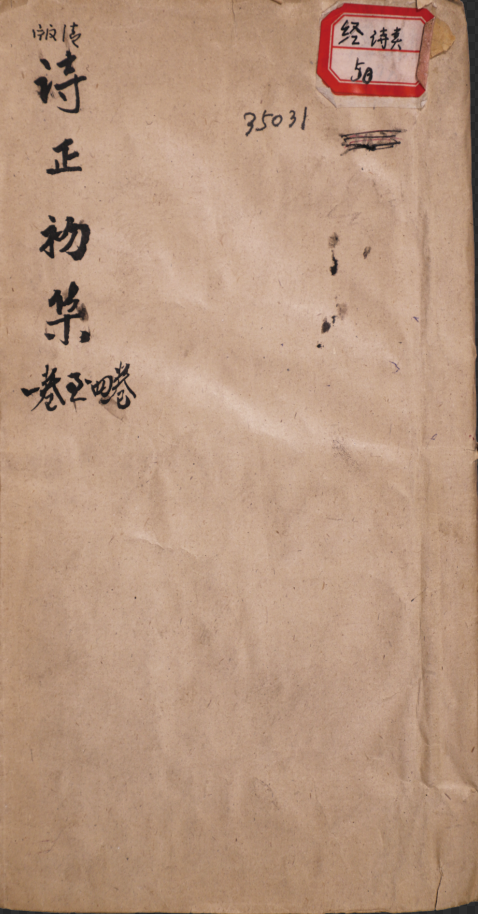 清版
诗正初集
一卷至四卷
35031
经 诗类
5册